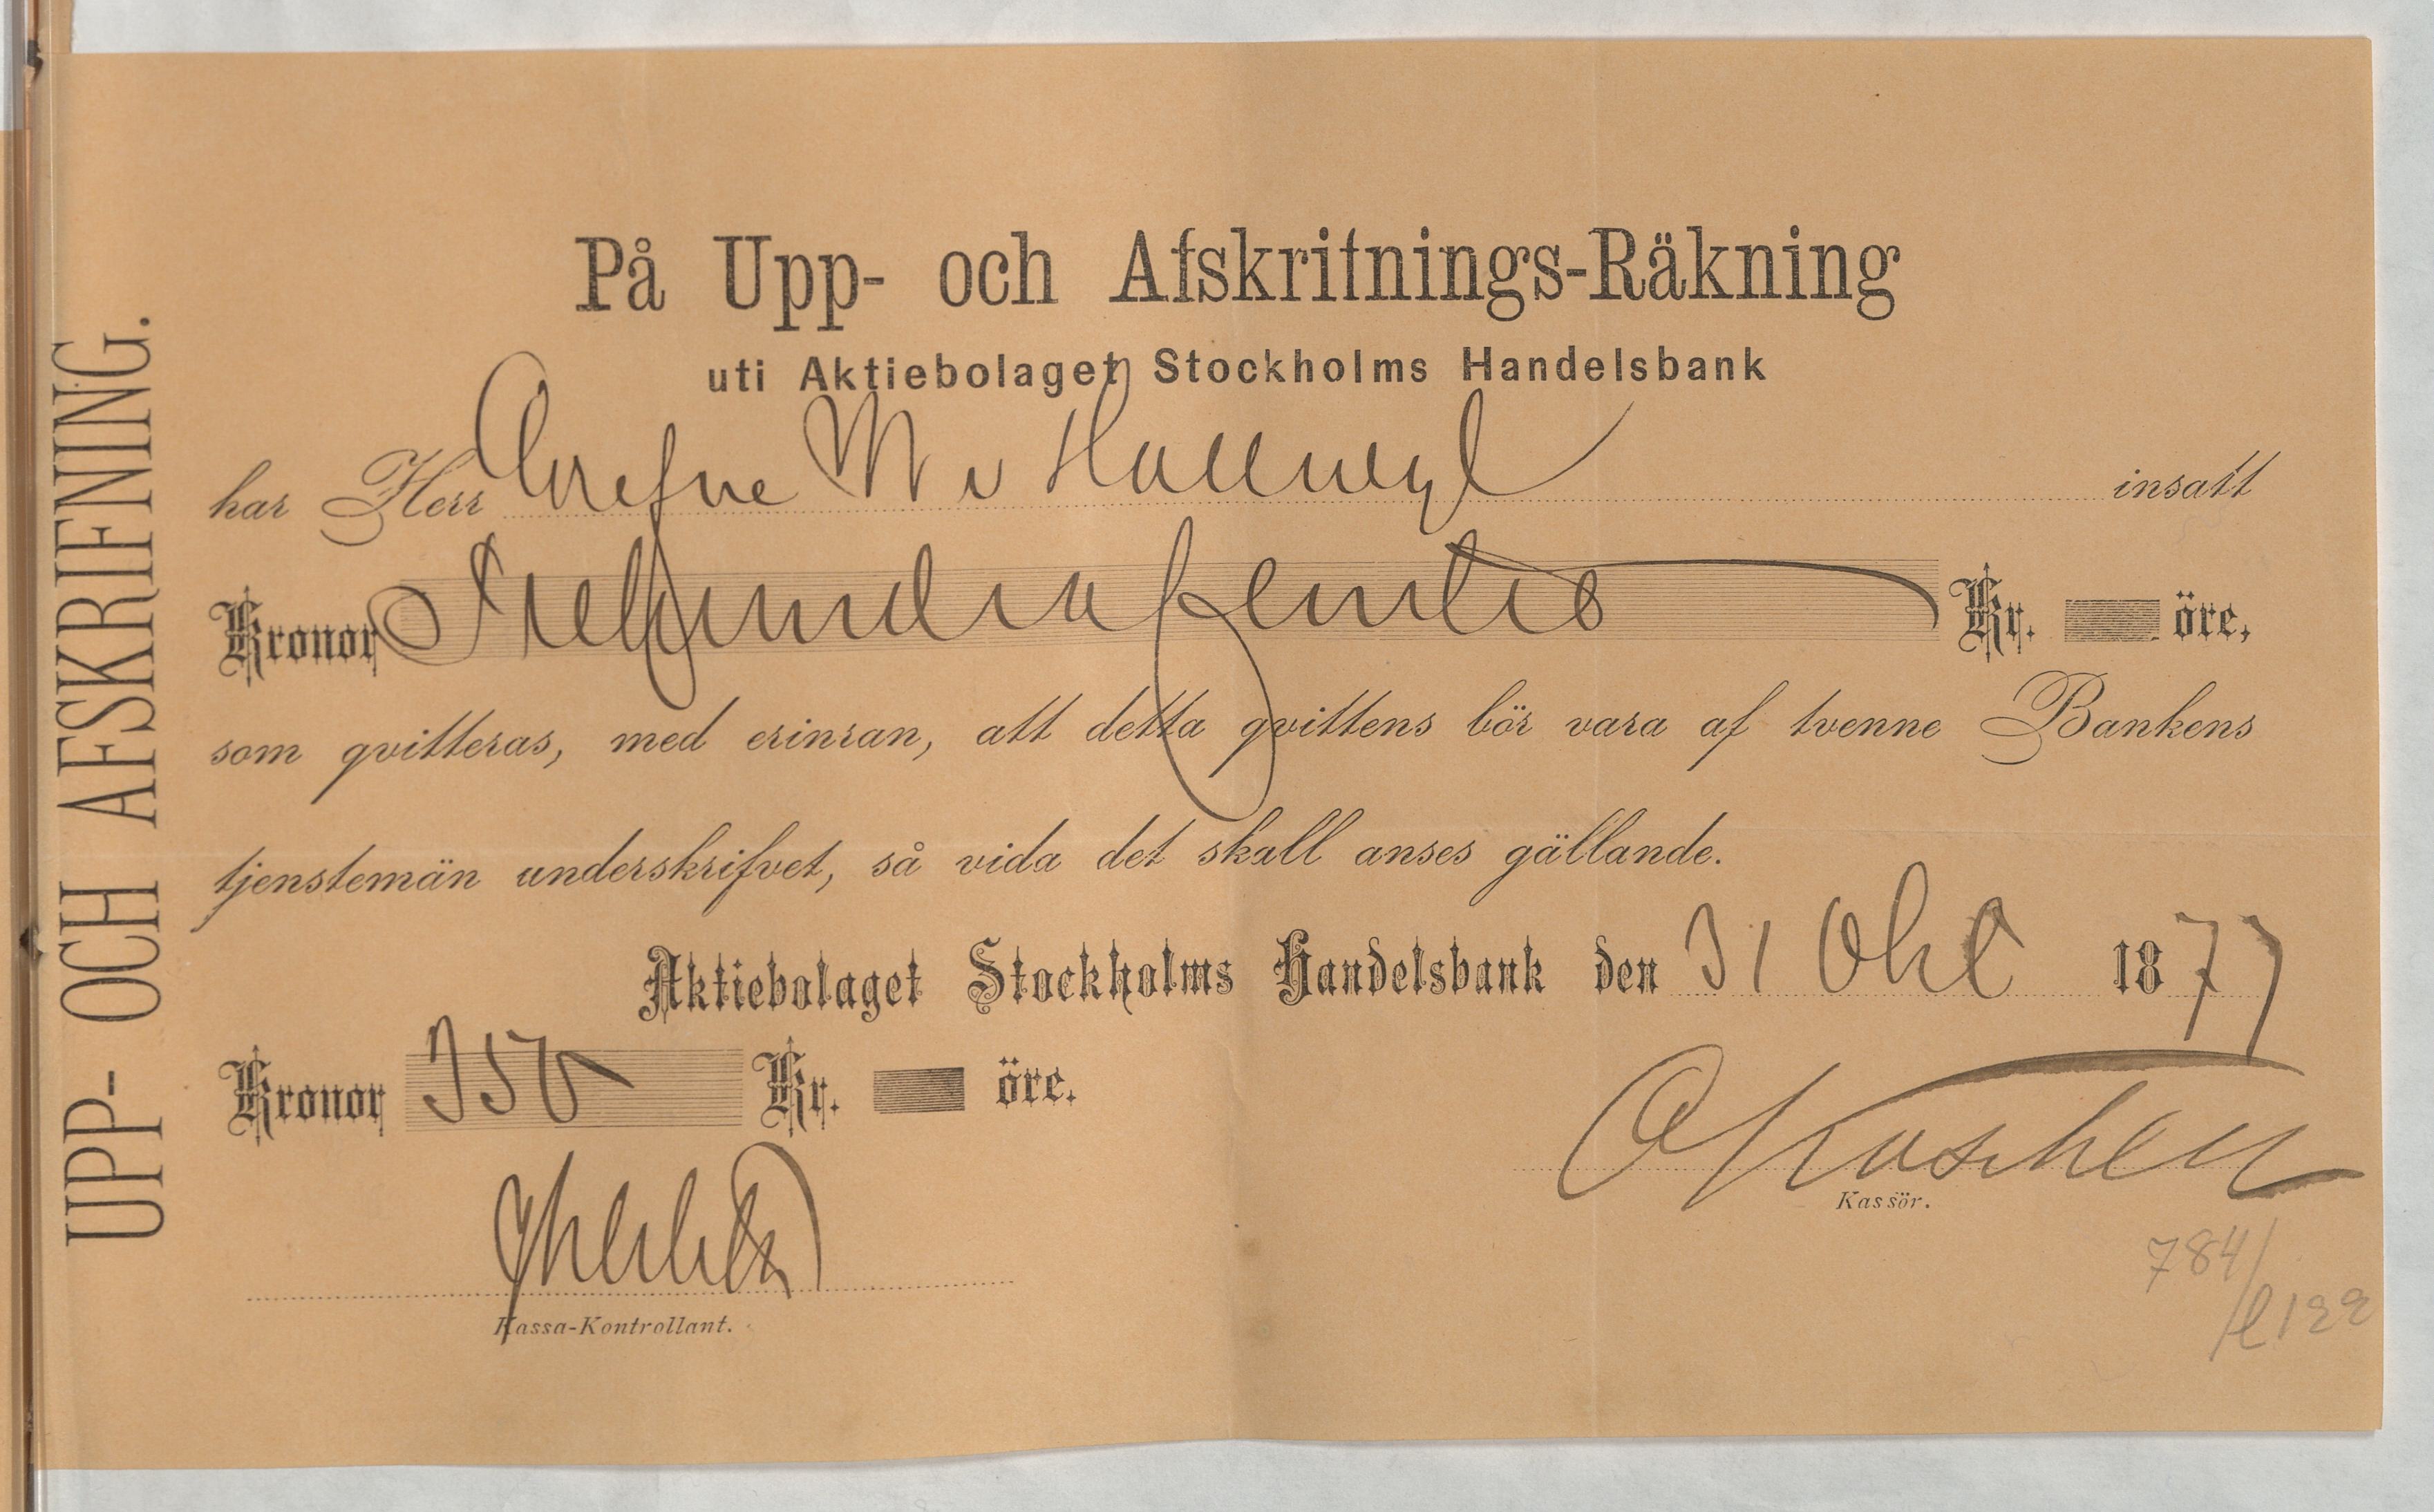 UPP- OCH AFSKRIFNING.
På Upp- och Afskrifnings-Räkning
uti Aktiebolaget Stockholms Handelsbank
har Herr Grefve W v Hallwyl insatt
Kronor Trehundrafemtio Kr. öre,
som qvitteras, med erinran, att detta qvittens bör vara af tvenne Bankens
tjenstemän underskrifvet, så vida det skall anses gällande.
Aktiebolaget Stockholms Handelsbank den 31 Okt 1877
Kronor 350 Kr. öre.
Kassör.
Kassa-Kontrollant.
784/